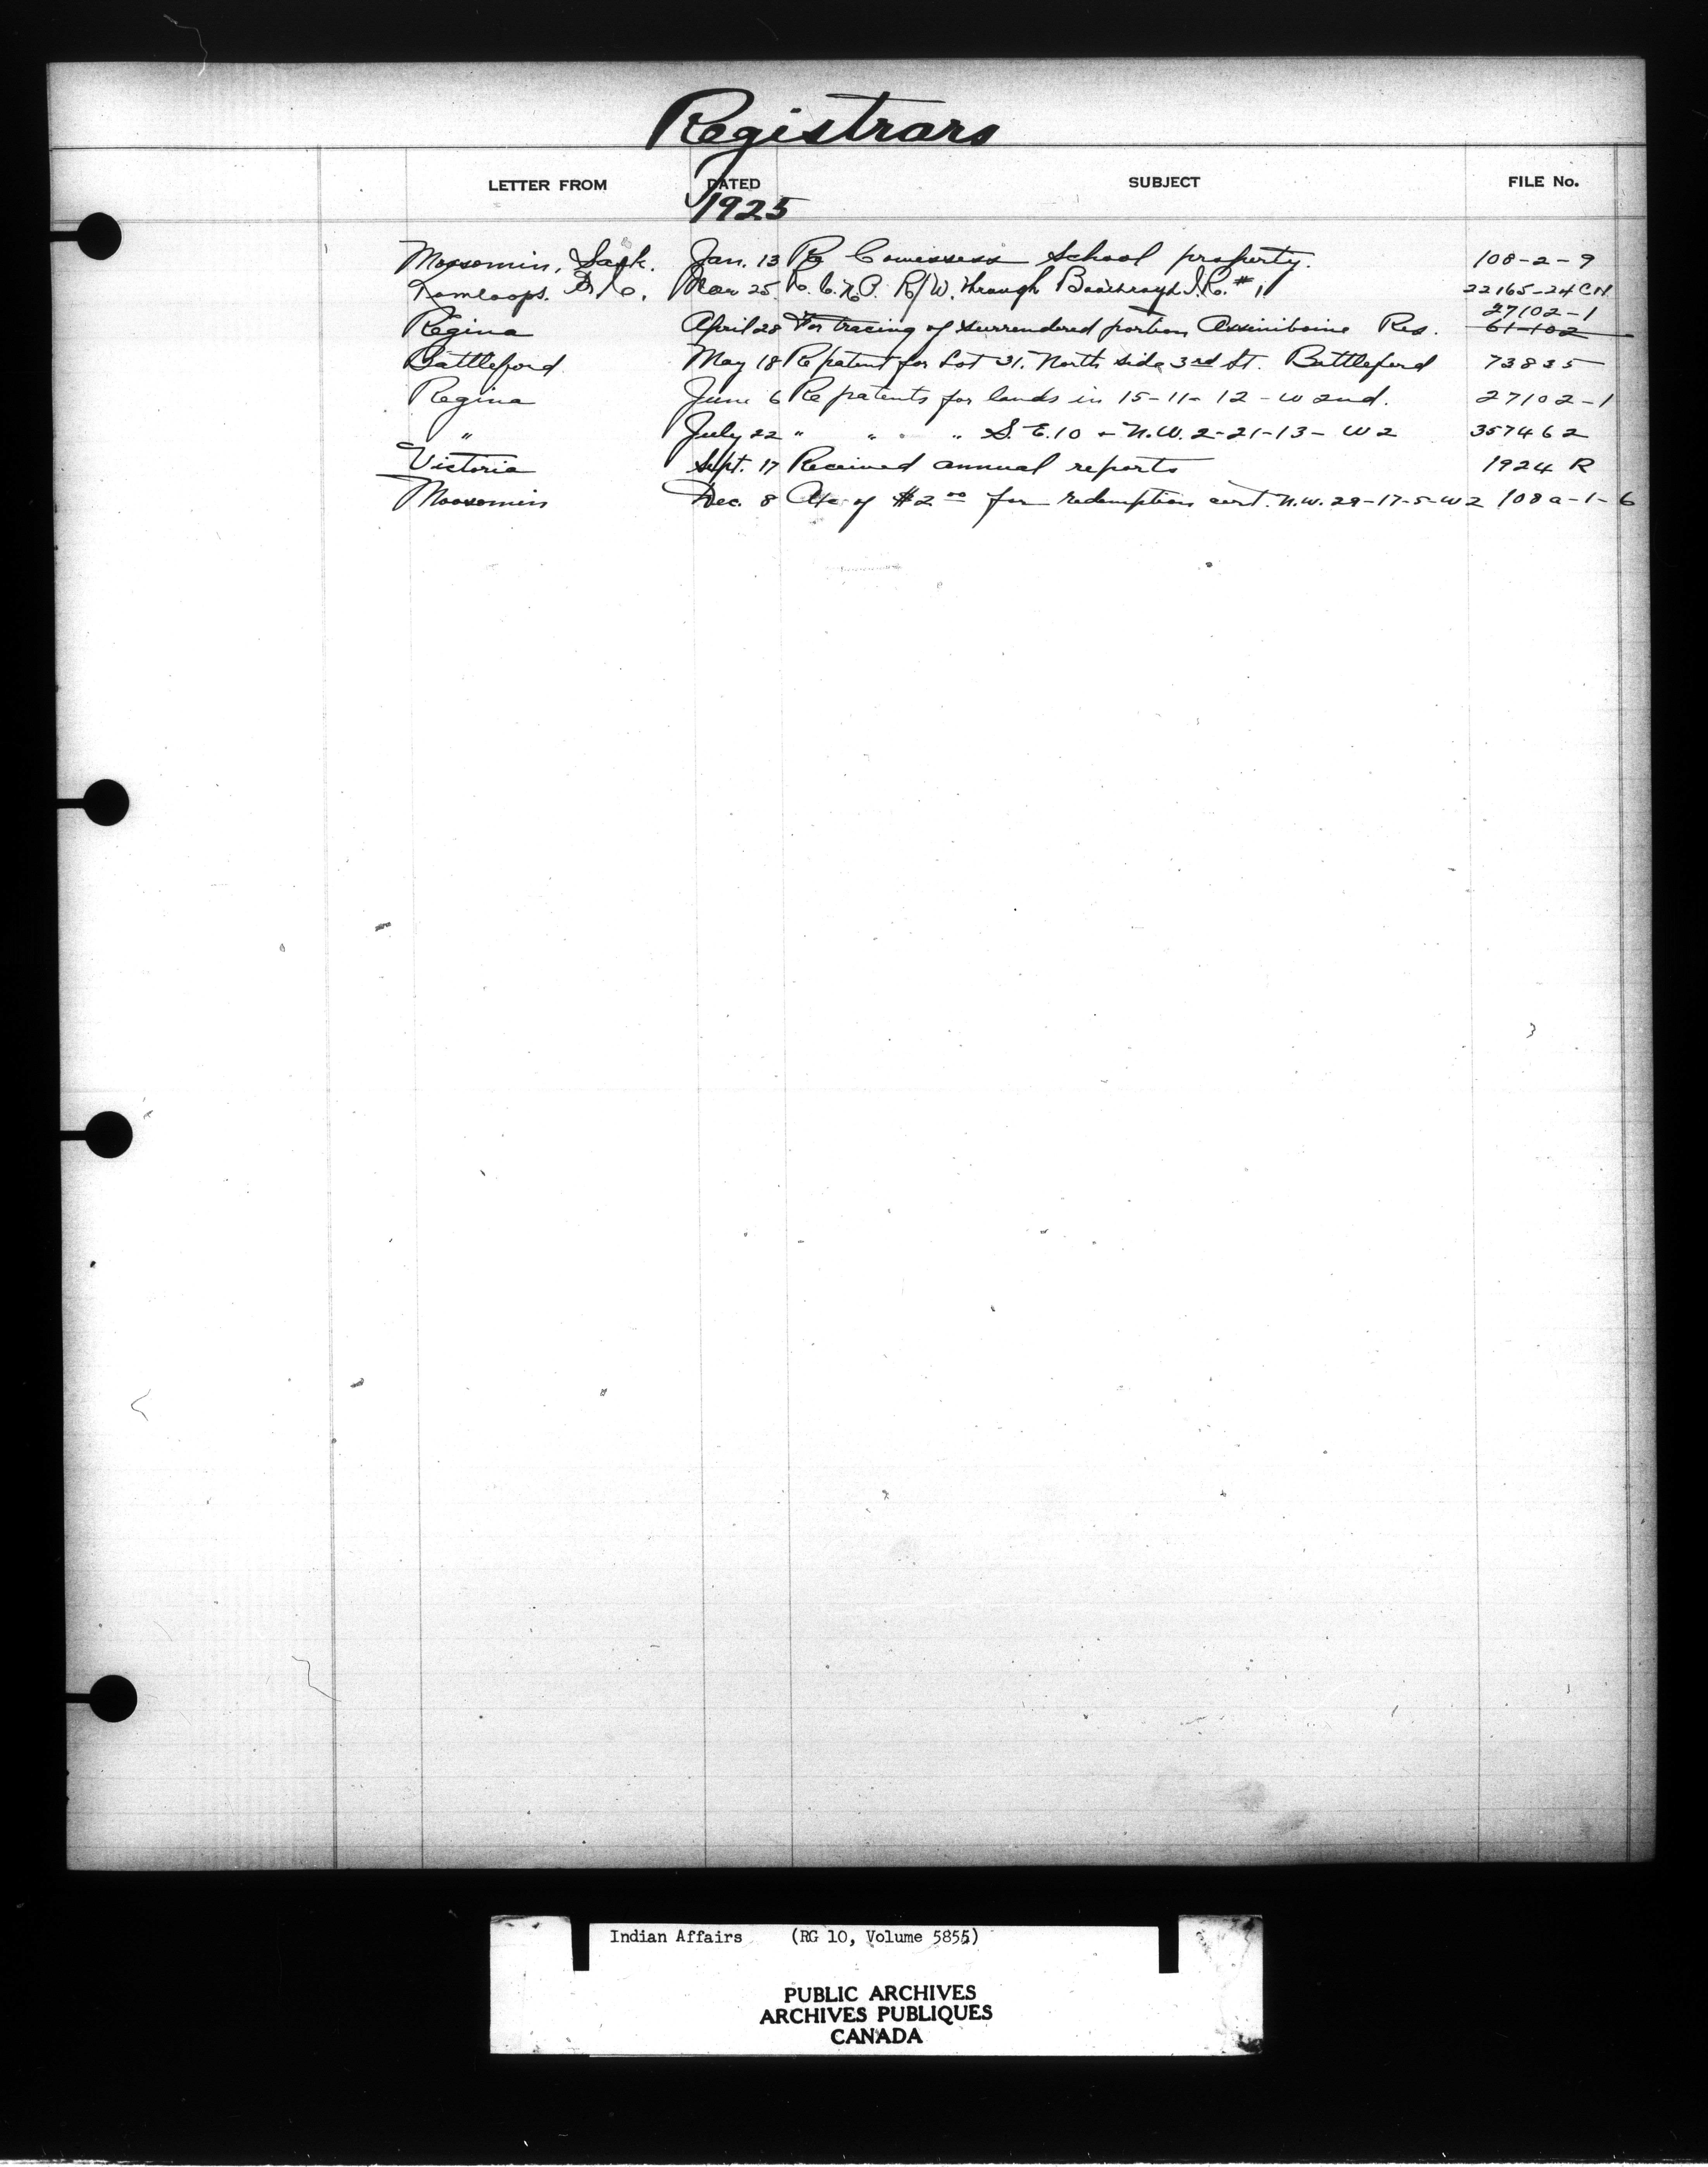 Registrars
LETTER FROM DATED SUBJECT FILE No.
1925
Moosomin, Sask. Jan. 13 Re Cowessess School property. 108-2-9
Kamloops. B.C. Mar 25 C.N.P. R/W. through Boothroyd I.R. #1 22165-24 CN
27102-1
Regina April 28 For tracing of surrendered portion Assiniboine Res. 61-102
Battleford May 18 Re patent for Lot 31. North side 3rd St. Battleford 73835
Regina June 6 Re patents for lands in 15-11-12-W 2nd. 27102-1
" July 22 " " " S.E. 10 & N.W. 2-21-13-W2 357462
Victoria Sept. 17 Received annual reports 1924 R
Moosomin Dec. 8 A/c of $2 00 for redemption cert. N.W. 29-17-5-W2 108a-1-6
Indian Affairs (RG 10, Volume 5855)
PUBLIC ARCHIVES
ARCHIVES PUBLIQUES
CANADA